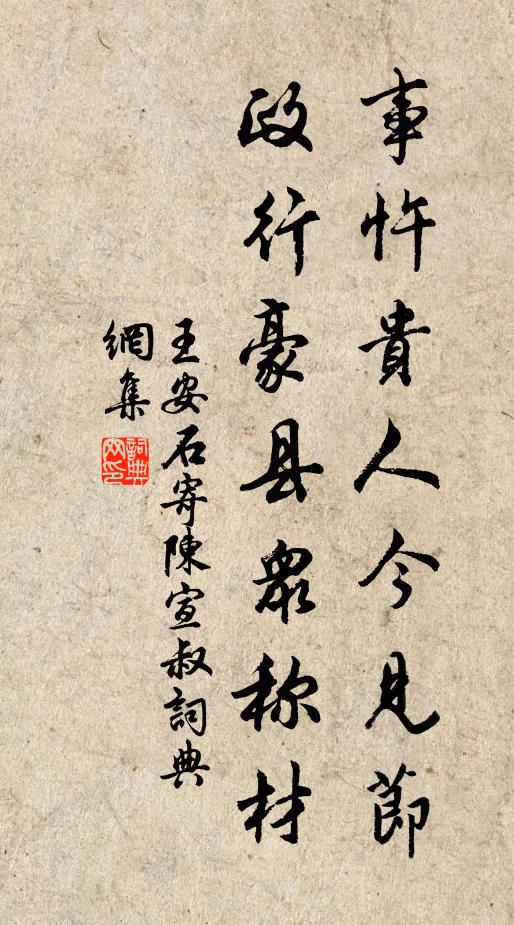 事忤貴人今見節
政行豪县眾称材
王安石寄陳宣叔詞典
網集
詞典
网印